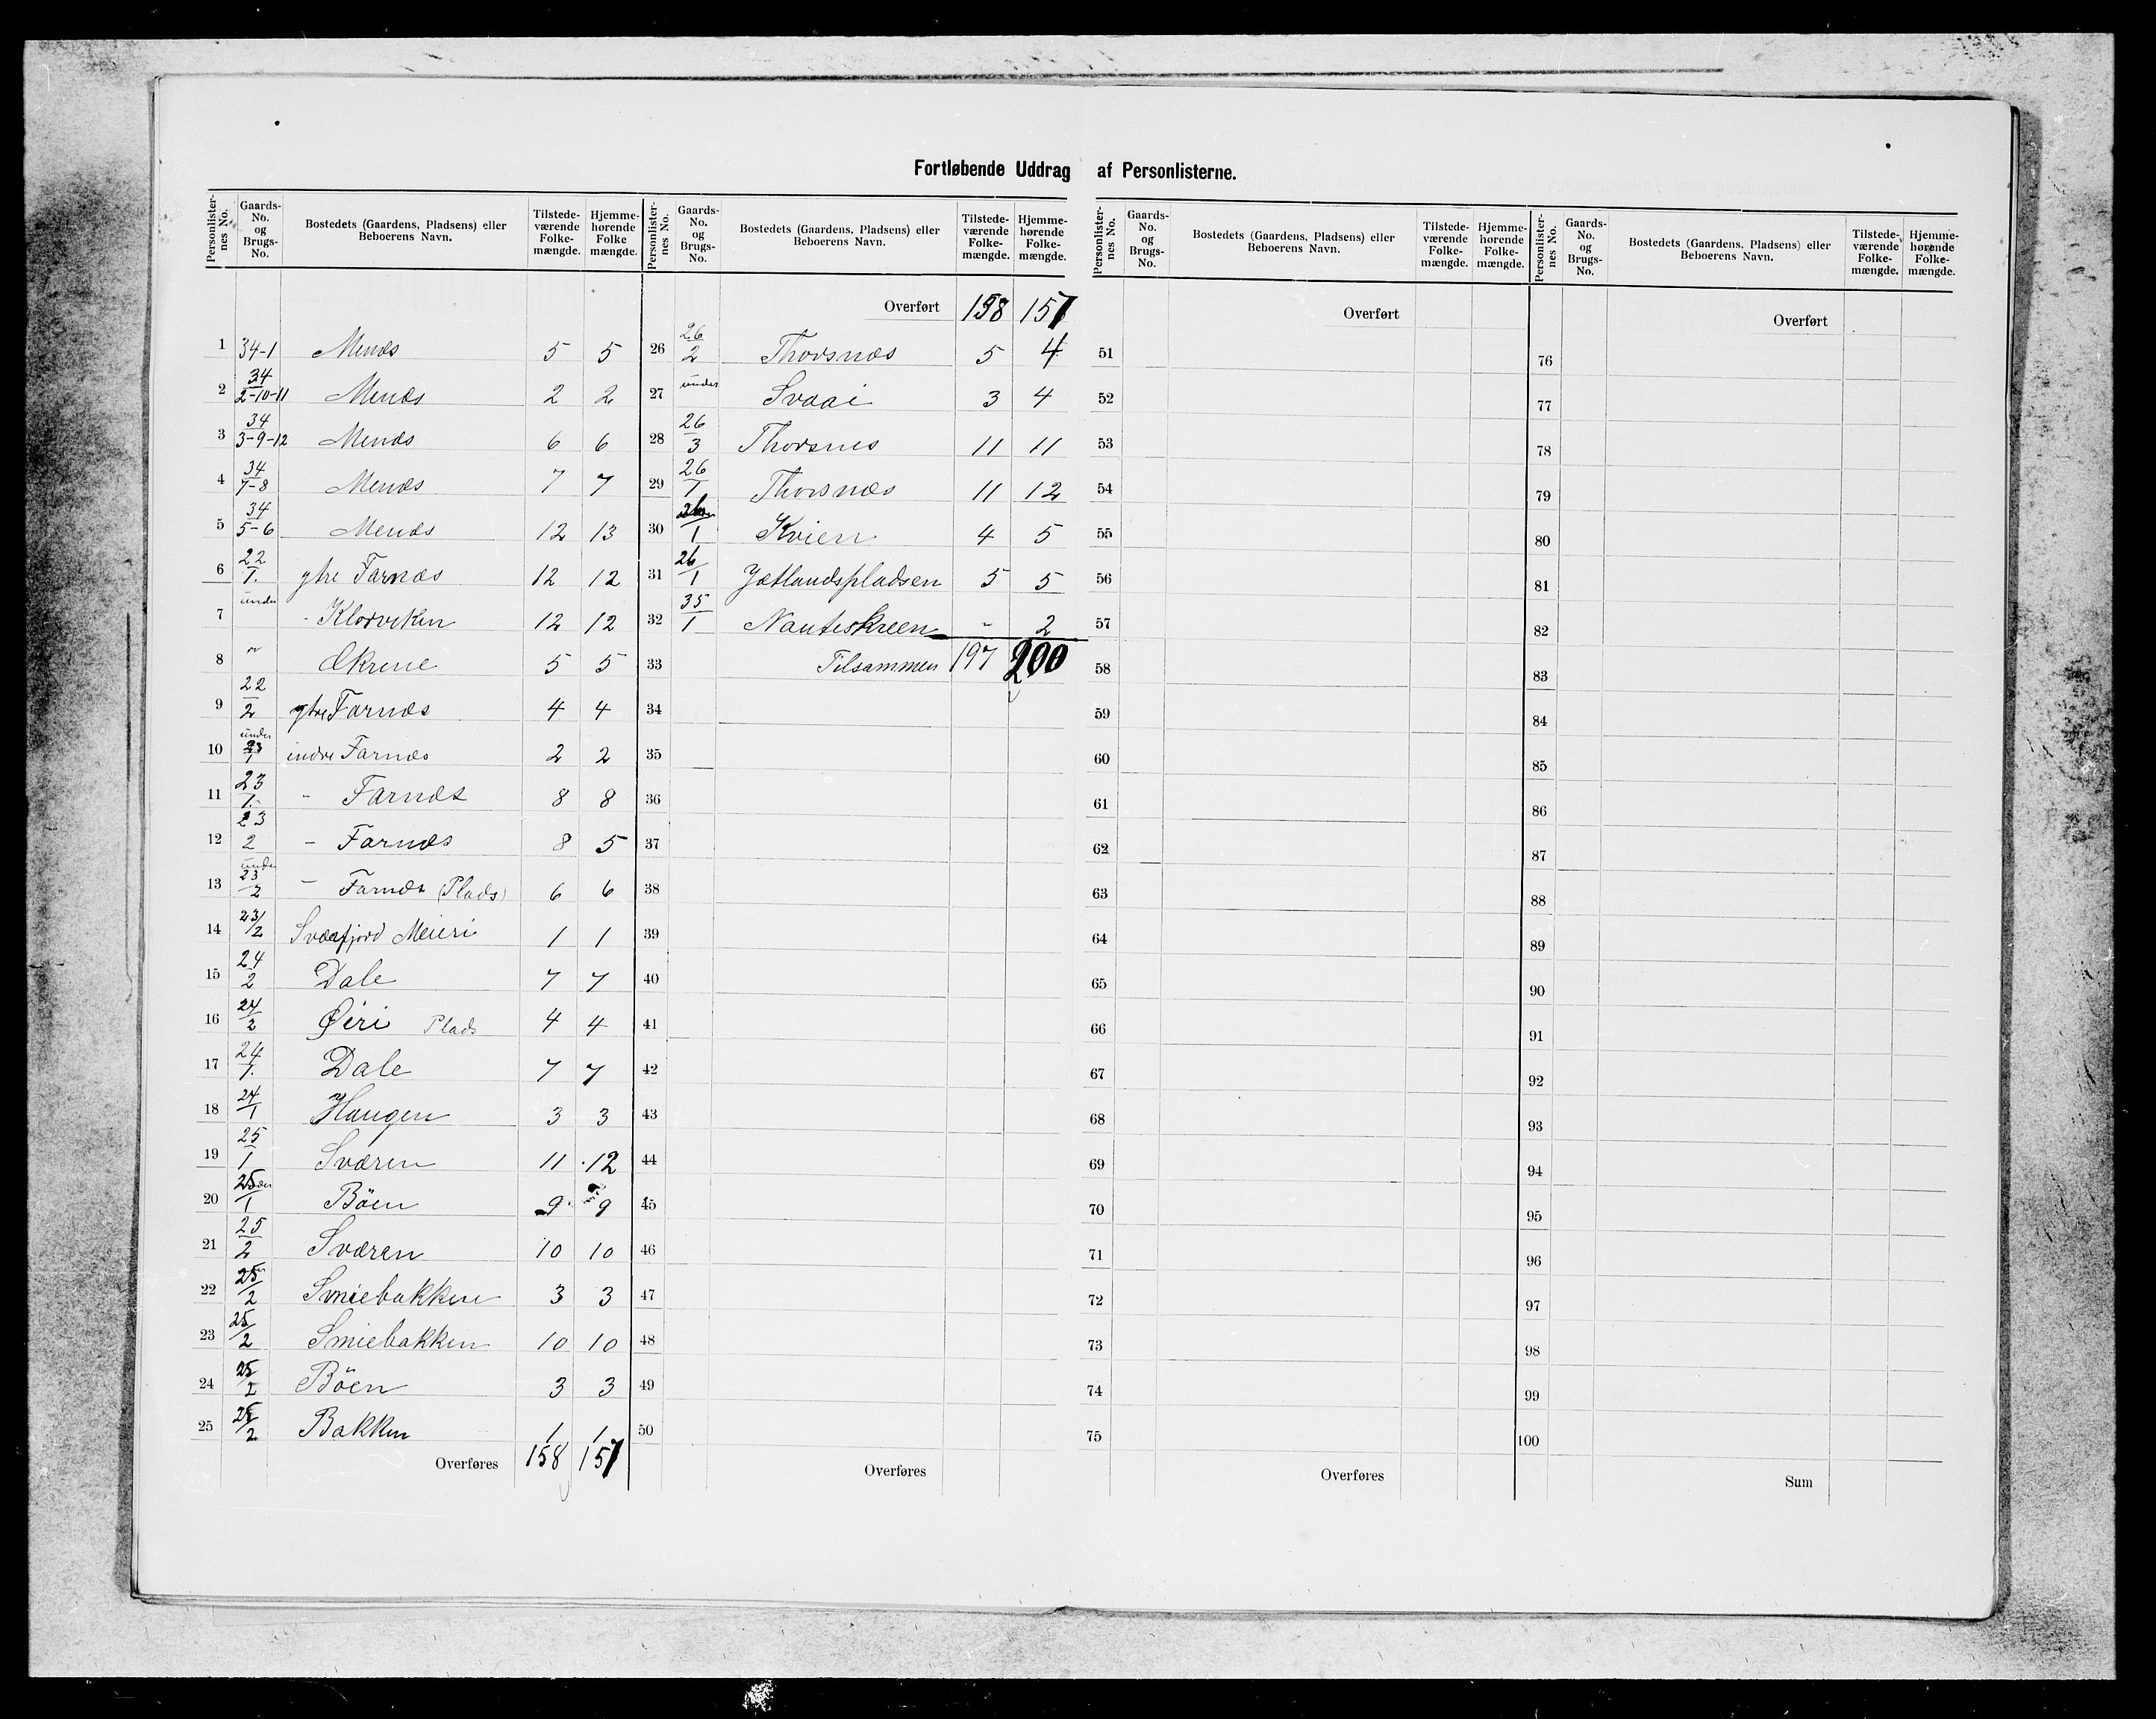 Fortløbende Uddrag af Personlisterne.
Personlister-nes No. Gaards-No. og Brugs-No. Bostedets (Gaardens, Pladsens) eller Beboerens Navn. Tilstede-værende Folke-mængde. Hjemme-hørende Folke mængde.
1 34-1 Menæs 5 5
2 34/2-10-11 Menæs 2 2
3 34/3-9-12 Menæs 6 6
4 34/7-8 Menæs 7 7
5 34/5-6 Menæs 12 13
6 22/1. ytre Farnæs 12 12
7 under Klorviken 12 12
8 " Ekrene 5 5
9 22/2 ytre Farnæs 4 4
10 under 23/1 indre Farnæs 2 2
11 23/1. - Farnæs 8 8
12 23/2 - Farnæs 8 5
13 under 23/2 - Farnæs (Plads) 6 6
14 23/2 Sværfjord Meieri 1 1
15 24/2 Dale 7 7
16 24/2 Øiri Plads 4 4
17 24/1. Dale 7 7
18 24/1 Haugen 3 3
19 25/1 Sværen 11 12
20 25/1 Böen 9 9
21 25/2 Sværen 10 10
22 25/2 Smiebakken 3 3
23 25/2 Smiebakken 10 10
24 25/2 Böen 3 3
25 25/2 Bakken 1 1
Overføres 158 157
Personlister-nes No. Gaards-No. og Brugs-No. Bostedets (Gaardens, Pladsens) eller Beboerens Navn. Tilstede-værende Folke-mængde. Hjemme-hørende Folke-mængde.
Overført 158 157
26 26/2 Thorsnæs 5 4
27 under Svaai 3 4
28 26/3 Thorsnes 11 11
29 26/1 Thorsnæs 11 12
30 26/1 Kvien 4 5
31 26/1 Jætlandspladsen 5 5
32 35/1 Nauteskreen - 2
33 Tilsammen 197 200
34
35
36
37
38
39
40
41
42
43
44
45
46
47
48
49
50
Overføres
Personlister-nes No. Gaards-No. og Brugs-No. Bostedets (Gaardens, Pladsens) eller Beboerens Navn. Tilstede-værende Folke-mængde. Hjemme-hørende Folke-mængde.
Overført
51
52
53
54
55
56
57
58
59
60
61
62
63
64
65
66
67
68
69
70
71
72
73
74
75
Overføres
Personlister-nes No. Gaards-No. og Brugs-No. Bostedets (Gaardens, Pladsens) eller Beboerens Navn. Tilstede-værende Folke-mængde. Hjemme-hørende Folke-mængde.
Overført
76
77
78
79
80
81
82
83
84
85
86
87
88
89
90
91
92
93
94
95
96
97
98
99
100
Sum